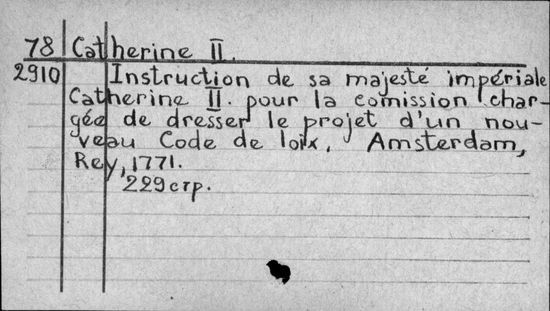 78 Catherine II.
2910 Instruction de sa majesté impériale
Catherine II. pour la comission char-
gée de dresser le projet d'un nou-
veau Code de loix. Amsterdam,
Rey, 1771.
229 стр.